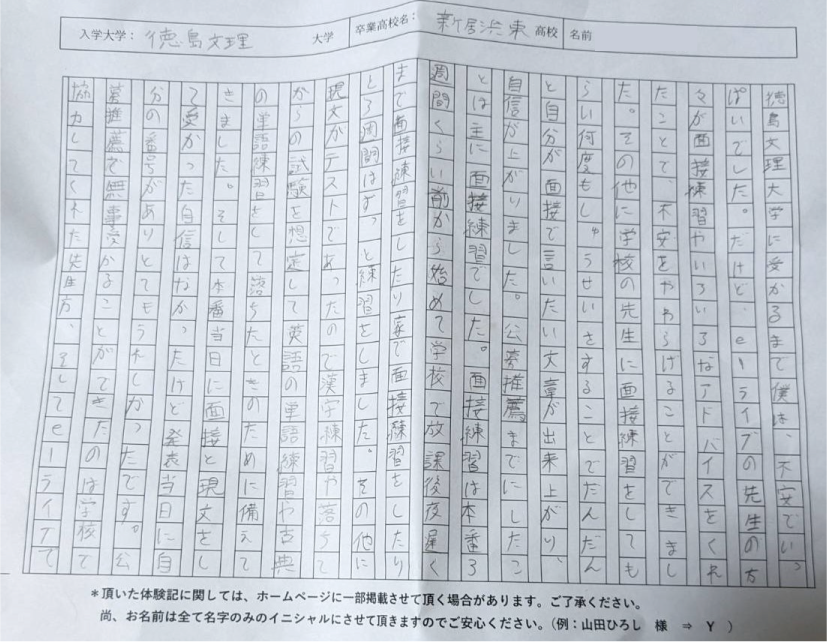 入学大学： 徳島文理 大学
卒業高校名： 新居浜東 高校
名前
徳島文理大学に受かるまで僕は、不安でいっ
ぱいでした。だけど、eーライブの先生の方
々が面接練習やいろいろなアドバイスをくれ
たことで、不安をやわらげることができまし
た。その他に学校の先生に面接練習をしても
らい何度もしゅうせいをすることでだんだん
と自分が面接で言いたい文章が出来上がり、
自信が上がりました。公募推薦までにしたこ
とは主に面接練習でした。面接練習は本番3
周間くらい前から始めて学校で放課後夜遅く
まで面接練習をしたり家で面接練習をしたり
と3周間はずっと練習をしました。その他に
現文がテストであったので漢字練習や落ちて
からの試験を想定して英語の単語練習や古典
の単語練習をして落ちたときのために備えて
きました。そして本番当日に面接と現文をし
て受かった自信はなかったけど発表当日に自
分の番号がありとてもうれしかったです。公
募推薦を無事受かることができたのは学校で
協力してくれた先生方、そしてeーライブで
＊頂いた体験記に関しては、ホームページに一部掲載させて頂く場合があります。ご了承ください。
尚、お名前は全て名字のみのイニシャルにさせて頂きますのでご安心ください。（例：山田ひろし 様 ⇒ Y ）